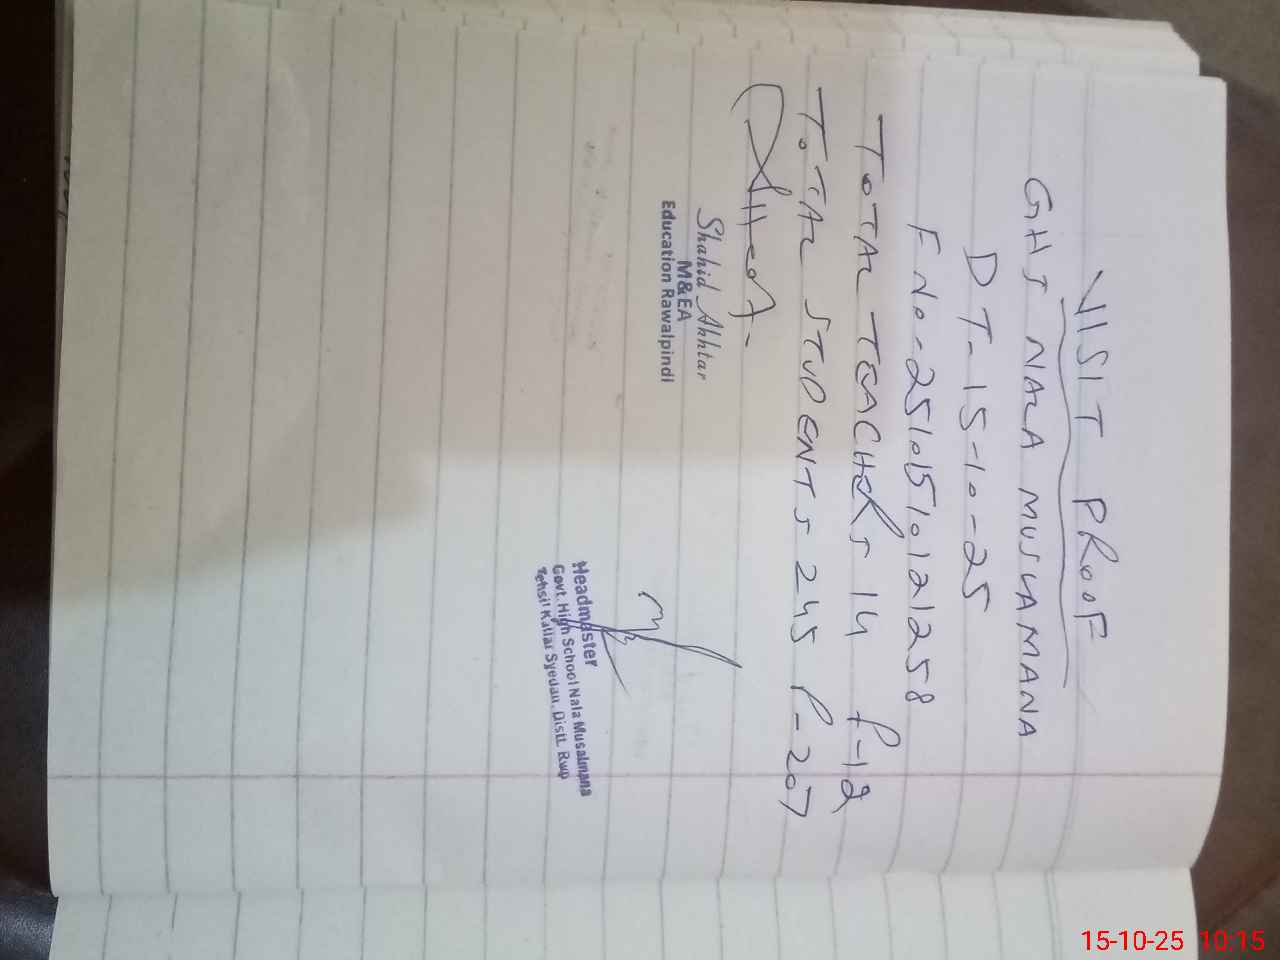 VISIT PROOF
GHS NALA MUSLAMANA
DT-15-10-25
F No-25101510121258
TOTAL TEACHERS 14 P-12
TOTAL STUDENTS 245 P-207
Shahid Akhtar
M&EA
Education Rawalpindi
Headmaster
Govt. High School Nala Musalmana
Tehsil Kallar Syedan. Distt. Rwp
15-10-25 10:15